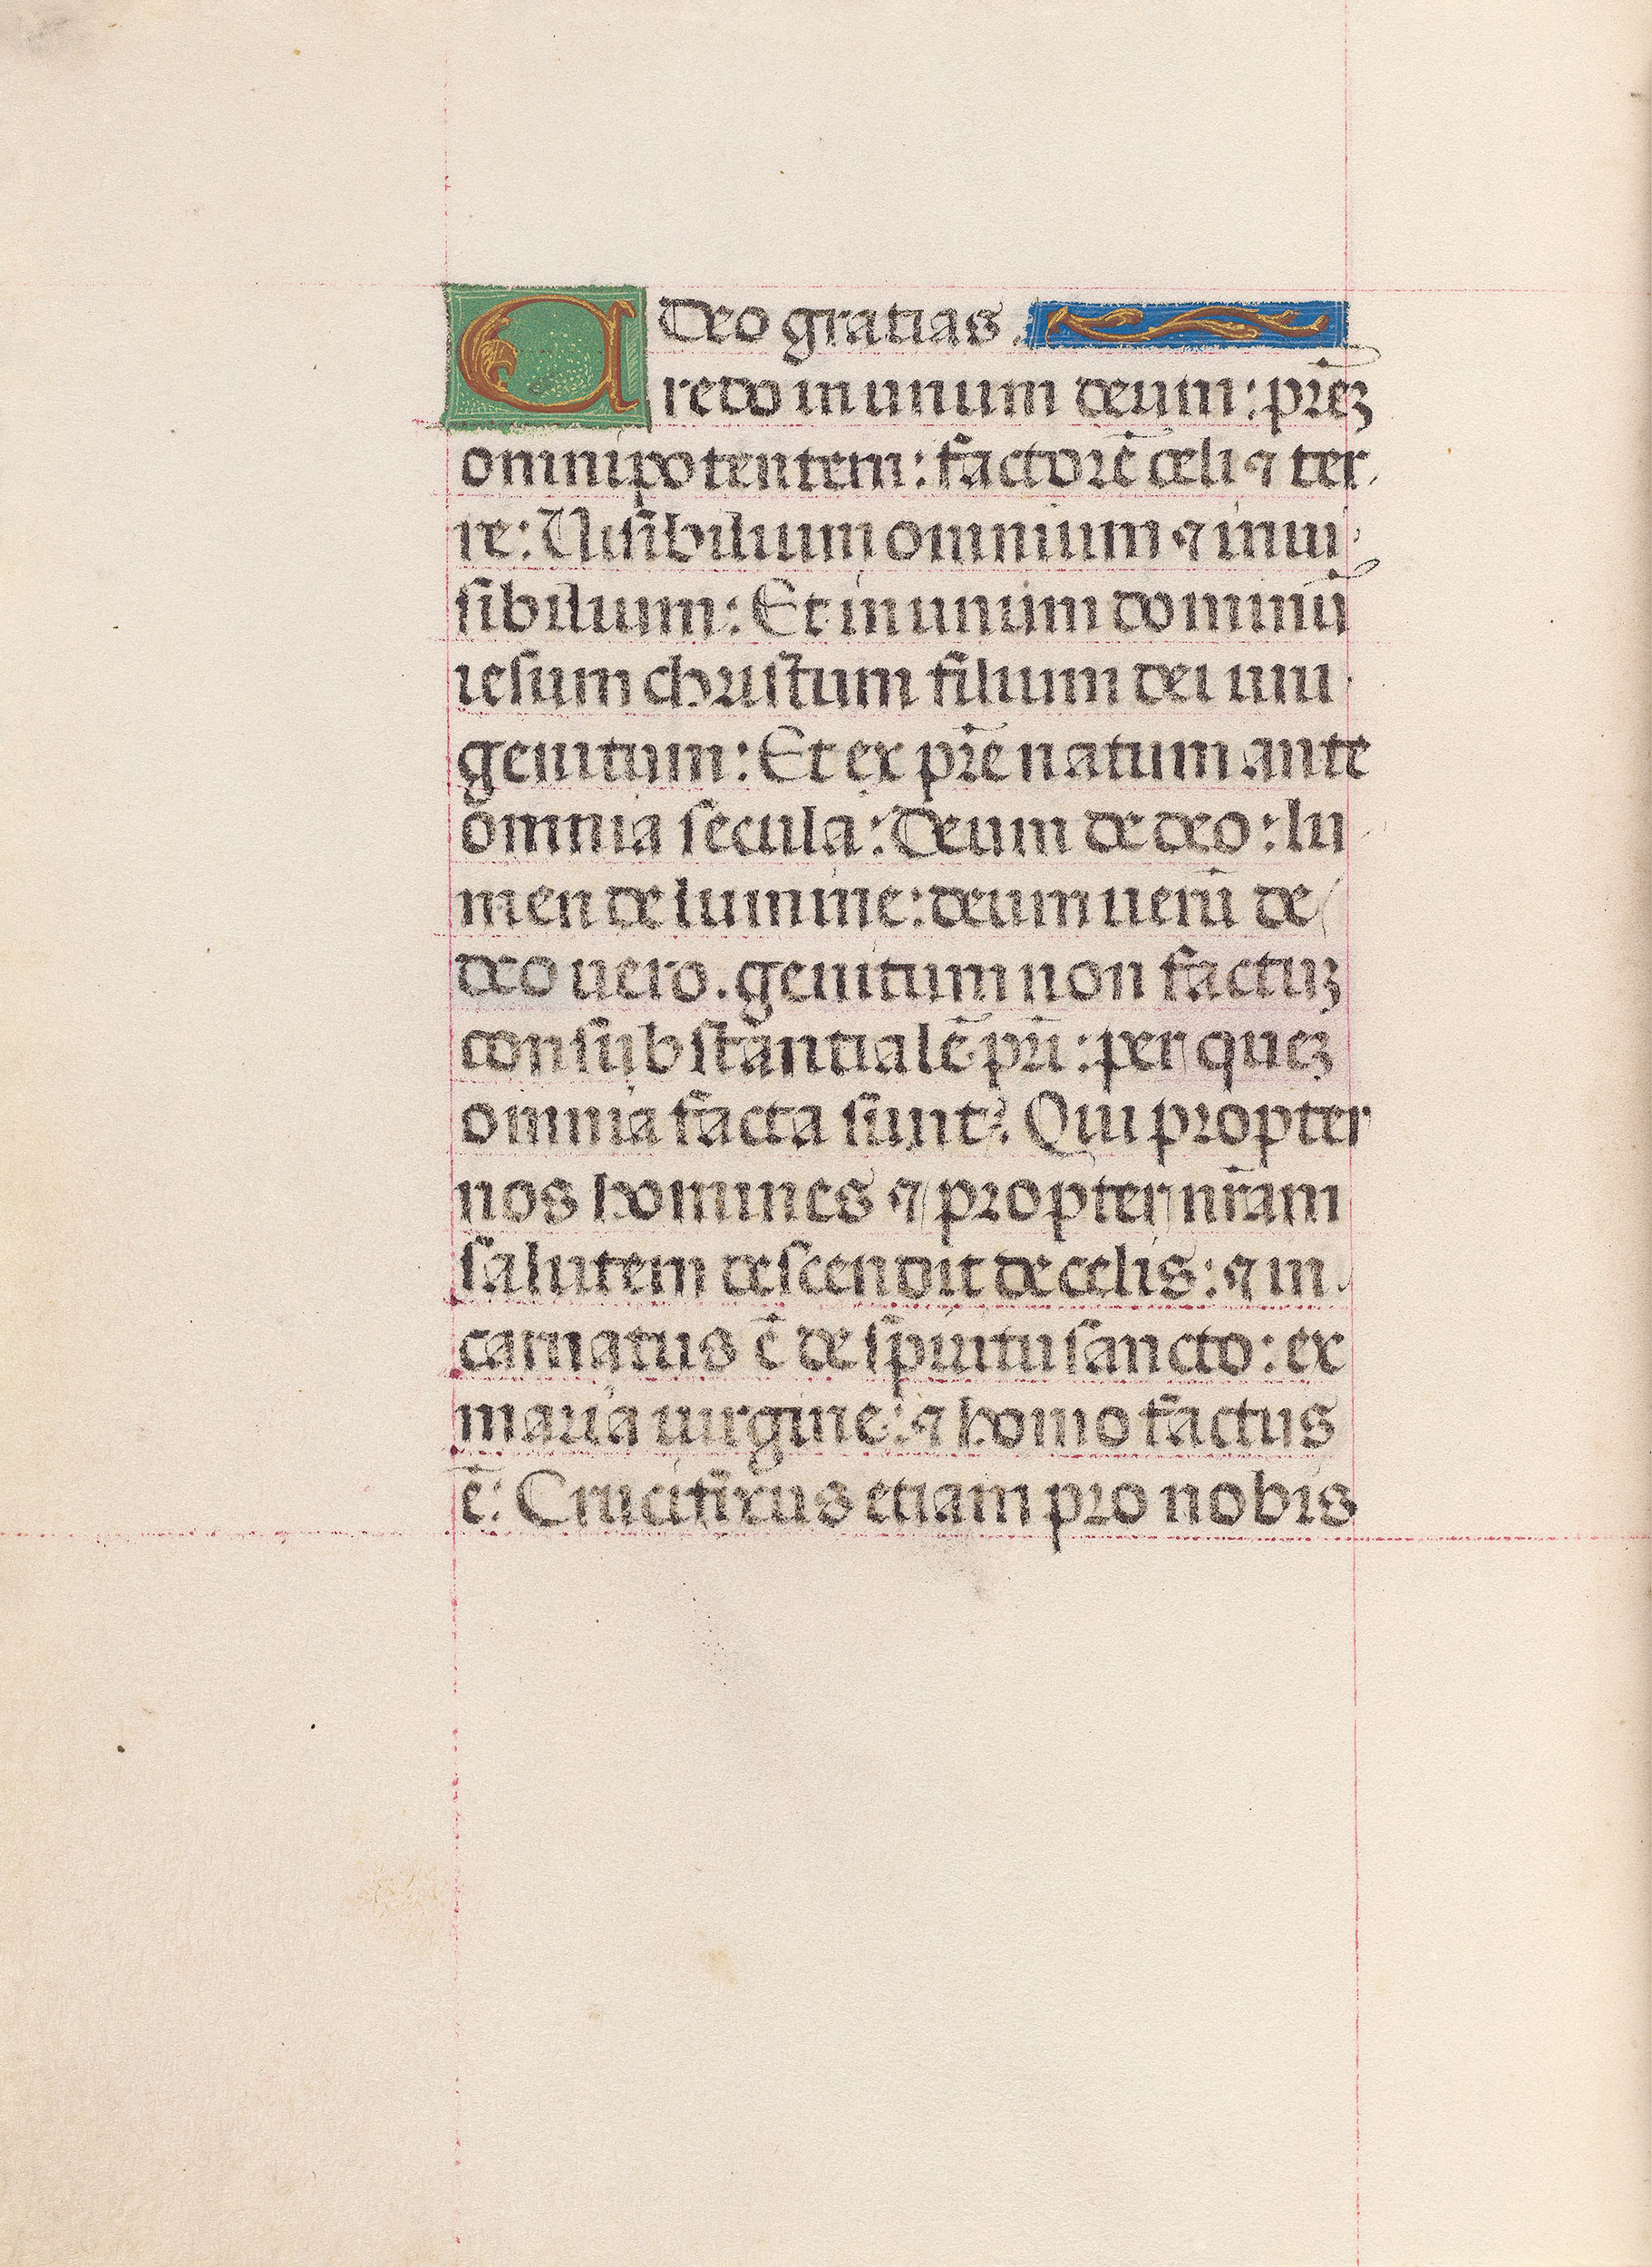 Deo gratias.
Credo in unum deum: prē̄ꝫ
omnipotentem: factorē celi ⁊ ter
re: Uisibilium omnium ⁊ inui
sibilium: Et in unum dominū
iesum christum filium dei uni
genitum: Et ex prē natum ante
omnia secula: Deum de deo: lu
men de lumine: deum uerū de
deo uero. genitum non factuꝫ
consubstantialē pri̅: per queꝫ
omnia facta sunt. Qui propter
nos homines ⁊ propter nr̄am
salutem descendit de celis: ⁊ in
carnatus ē de spiritu sancto: ex
maria uirgine: ⁊ homo factus
ē: Crucifixus etiam pro nobis